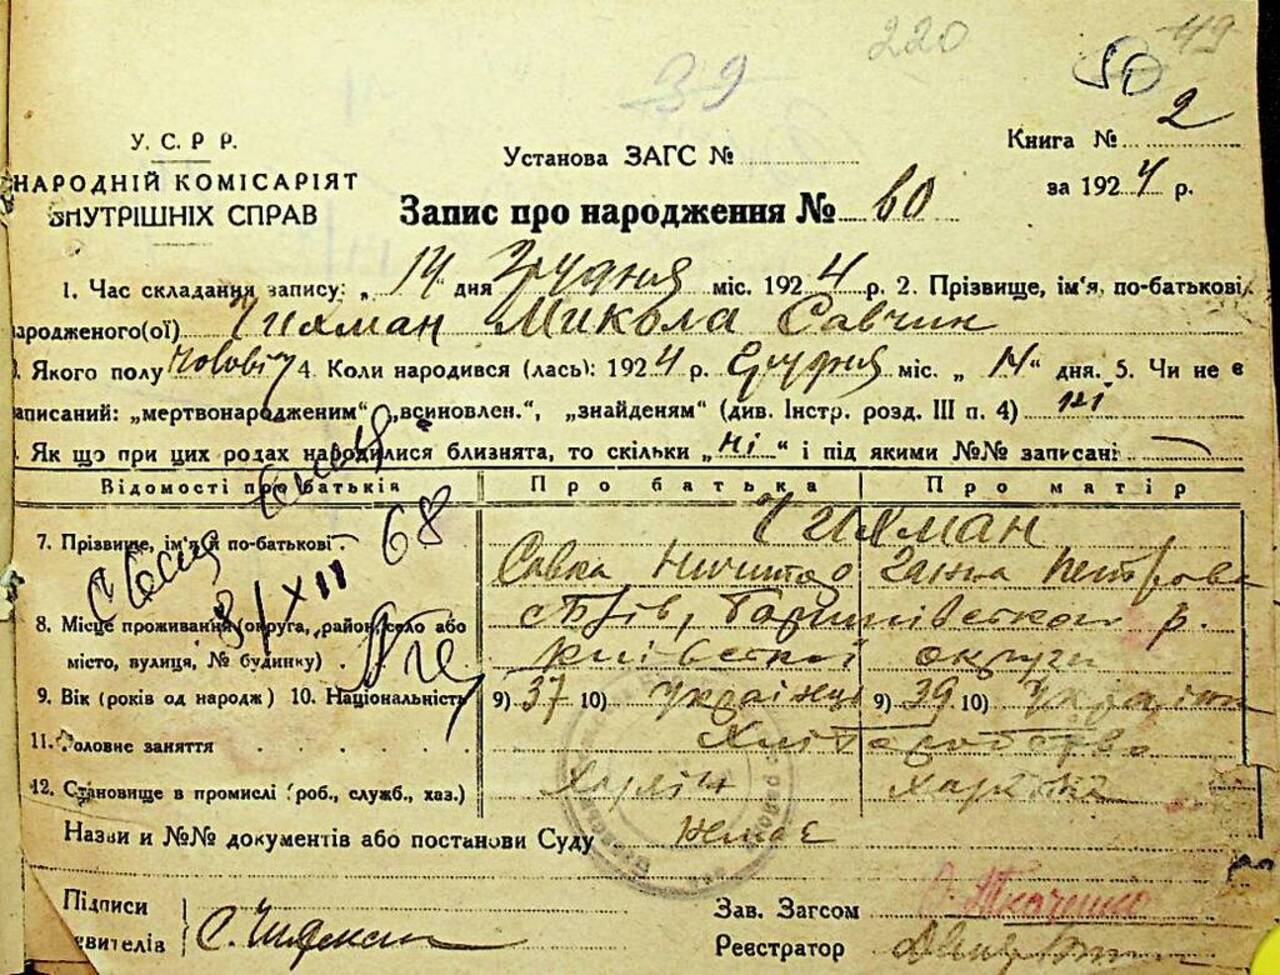 220 49
39 50
У. С. Р Р.
НАРОДНІЙ КОМІСАРІЯТ
ВНУТРІШНІХ СПРАВ
Установа ЗАГС №
Книга № 2
за 1924 р.
Запис про народження № 60
1. Час складання запису: „ 14 " дня Грудня міс. 1924 р. 2. Прізвище, ім'я, по-батькові
народженого(ої) Чихман Микола Савчин
Якого полу чоловічу 4. Коли народився (лась): 1924 р. Грудня міс. „ 14 " дня. 5. Чи не є
записаний: „мертвонародженим" „всиновлен.", „знайденям" (див. Інстр. розд. III п. 4) ні
Як що при цих родах народилися близнята, то скільки „ ні " і під якими №№ записані
Відомості про батьків Про батька Про матір
Чихман
7. Прізвище, ім'я й по-батькові Савка Ганна Петрова
68
8/XII
8. Місце проживання (округа, район, село або
місто, вулиця, № будинку) Київської округи
9. Вік (років од народж) 10. Національність 9) 37 10) Українець 9) 39 10) Українка
11. Головне заняття Хліборобство
12. Становище в промислі (роб., служб., хаз.)
Назви и №№ документів або постанови Суду Немає
Підписи
явителів С. Чихман
Зав. Загсом Ткаченко
Реєстратор